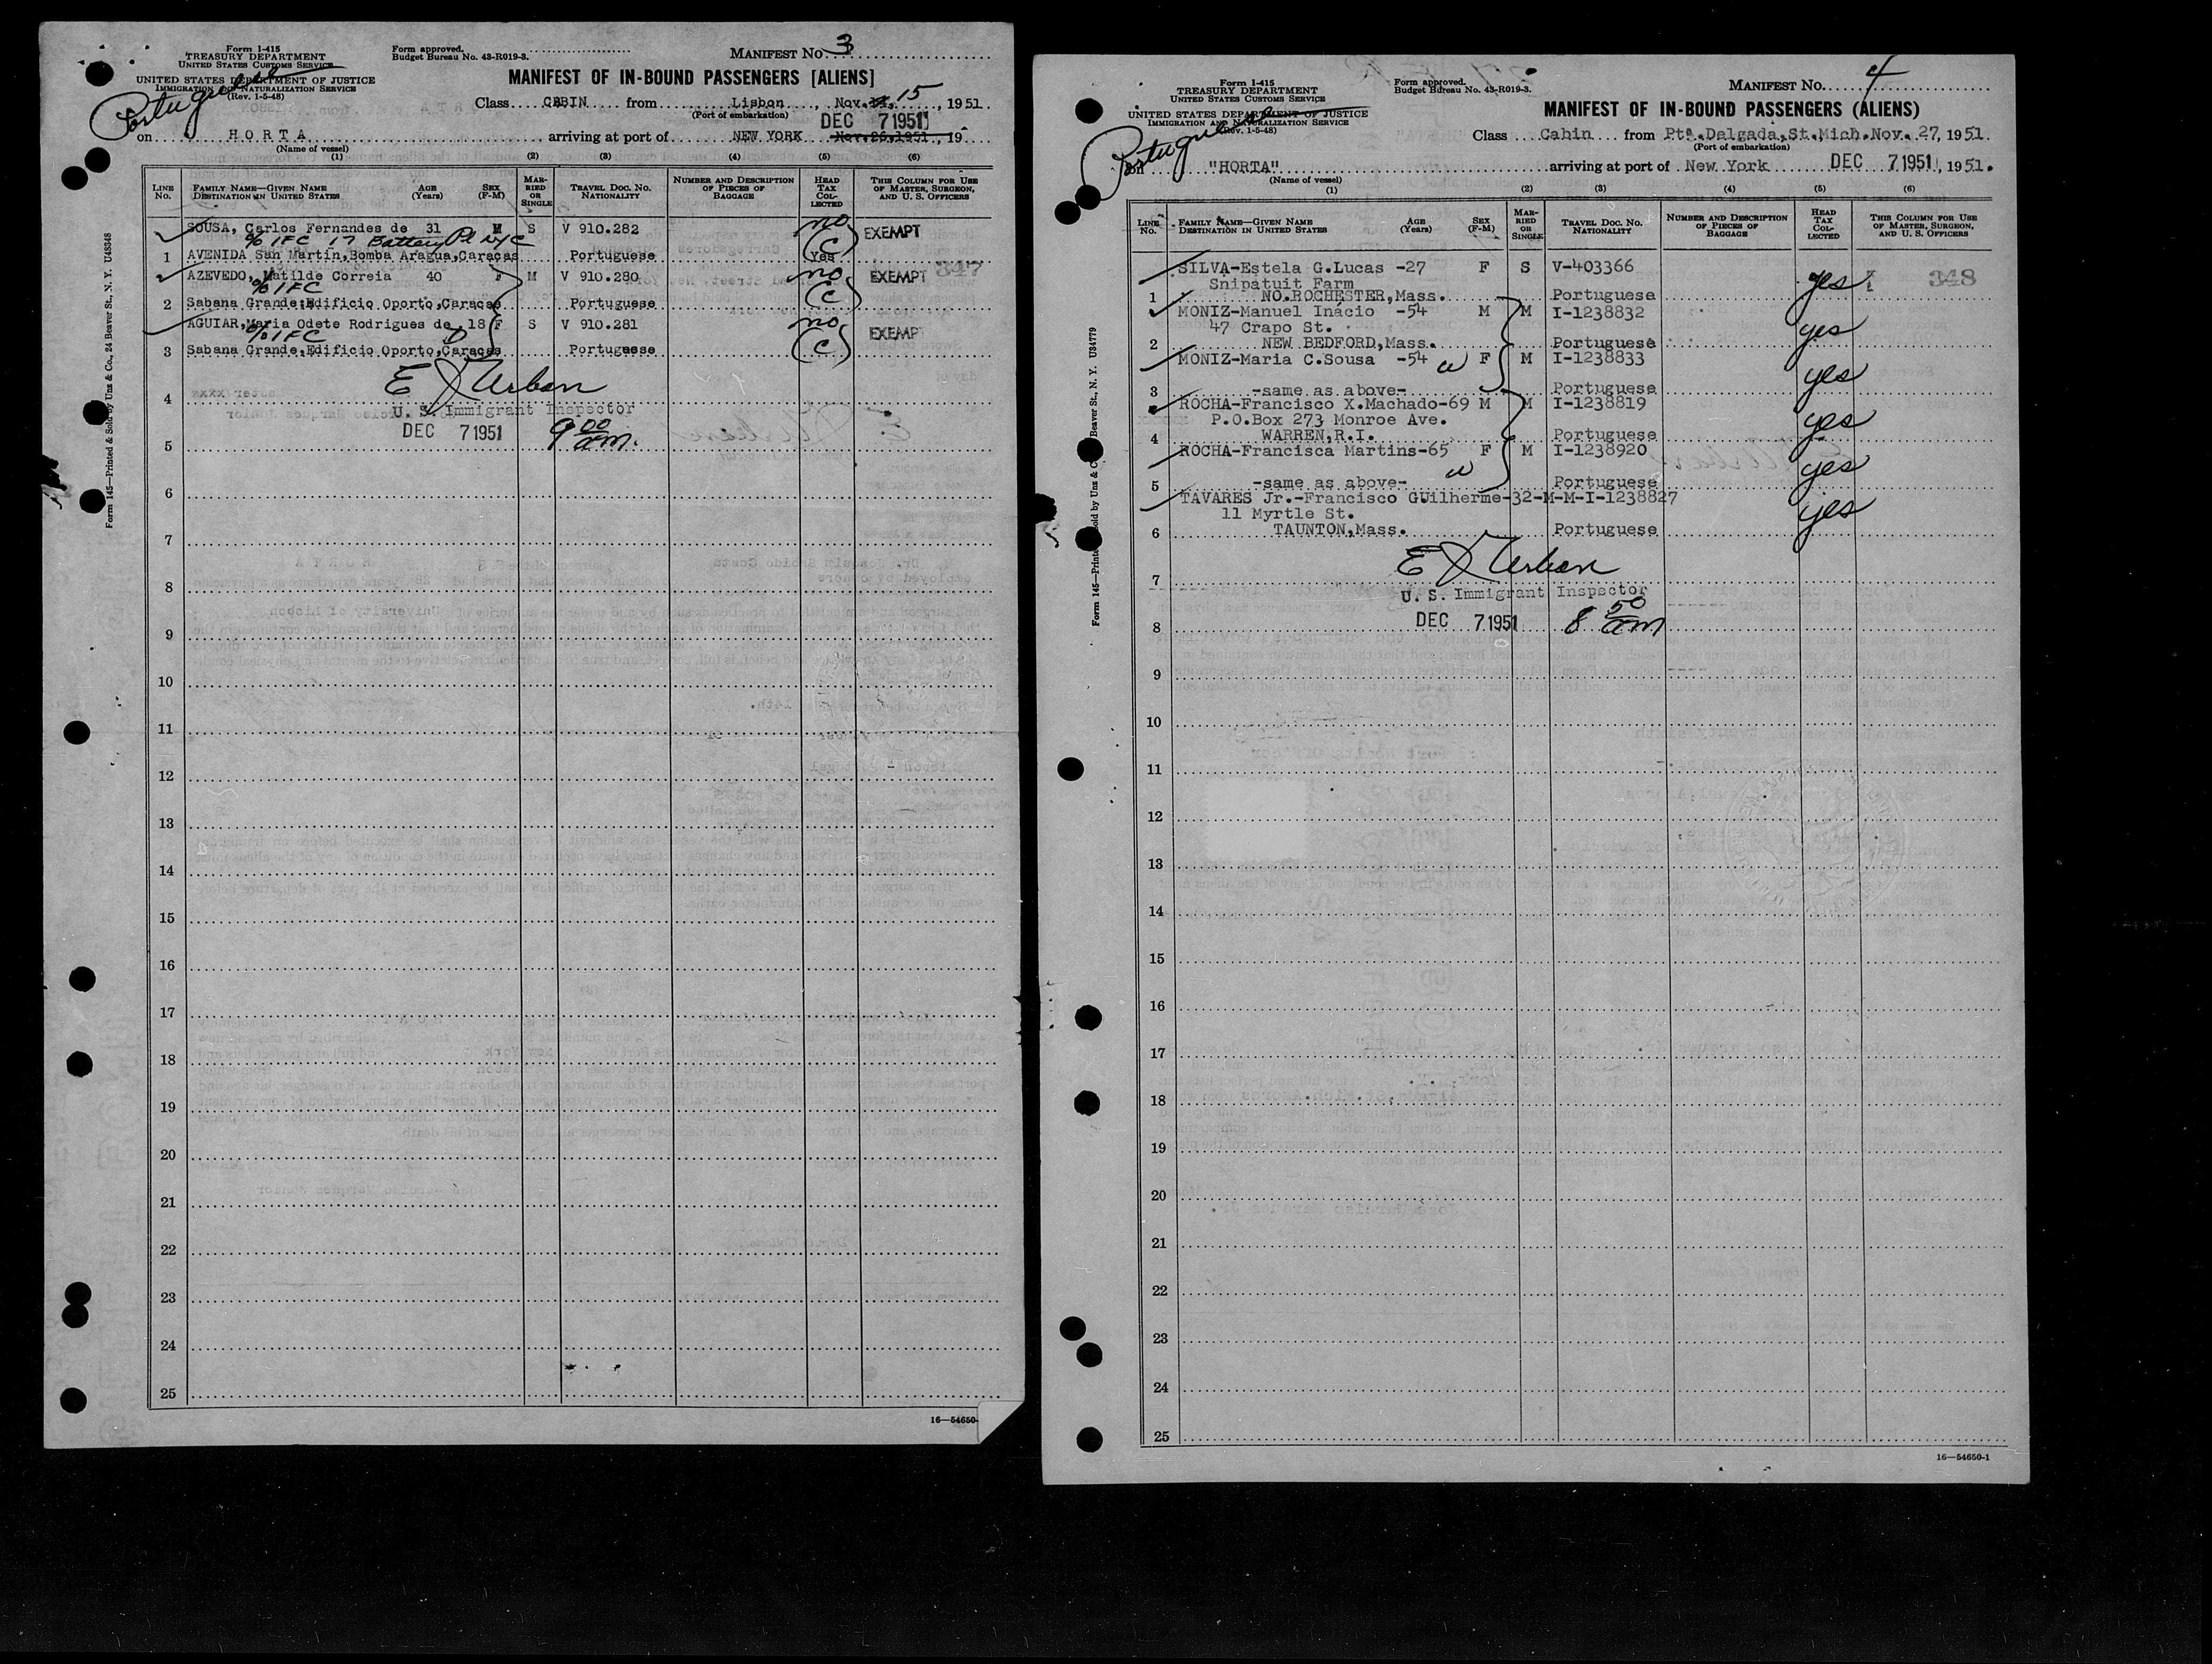 Form I-415
TREASURY DEPARTMENT
UNITED STATES CUSTOMS SERVICE
UNITED STATES DEPARTMENT OF JUSTICE
IMMIGRATION AND NATURALIZATION SERVICE
(Rev. 1-5-48)
Form approved.
Budget Bureau No. 43-R019-3.
MANIFEST No. 3
MANIFEST OF IN-BOUND PASSENGERS [ALIENS]
Portuguese
Class CABIN from Lisbon, Nov. 15, 1951
(Port of embarkation)
DEC 7 1951
on HORTA arriving at port of NEW YORK Nov.26,1951, 19
(Name of vessel)
(1) (2) (3) (4) (5) (6)
LINE No. FAMILY NAME—GIVEN NAME DESTINATION IN UNITED STATES AGE (Years) SEX (F-M) MARRIED OR SINGLE TRAVEL DOC. NO. NATIONALITY NUMBER AND DESCRIPTION OF PIECES OF BAGGAGE HEAD TAX COLLECTED THIS COLUMN FOR USE OF MASTER, SURGEON, AND U. S. OFFICERS
SOUSA, Carlos Fernandes de 31 M S V 910.282 no EXEMPT
% IFC 17 Battery Pl NYC (C)
1 AVENIDA San Martin,Bomba Aragua,Caracas Portuguese Yes 347
AZEVEDO, Matilde Correia 40 F M V 910.280 no EXEMPT
% IFC
2 Sabana Grande,Edificio Oporto,Caracas Portuguese (C)
AGUIAR,Maria Odete Rodrigues de 18 F S V 910.281 no EXEMPT
% IFC D
3 Sabana Grande,Edificio Oporto,Caracas Portuguese (C)
E J Urban
4
U. S. Immigrant Inspector
DEC 7 1951 9 00 am.
5
6
7
8
9
10
11
12
13
14
15
16
17
18
19
20
21
22
23
24
25
16—54650-
Form 145—Printed & Sold by Unz & Co., 24 Beaver St., N. Y. U48348
Form I-415
TREASURY DEPARTMENT
UNITED STATES CUSTOMS SERVICE
UNITED STATES DEPARTMENT OF JUSTICE
IMMIGRATION AND NATURALIZATION SERVICE
(Rev. 1-5-48)
Form approved.
Budget Bureau No. 43-R019-3.
MANIFEST No. 4
MANIFEST OF IN-BOUND PASSENGERS (ALIENS)
Portuguese
Class Cabin from Ptª.Delgada,St.Mich.Nov. 27, 1951.
(Port of embarkation)
on "HORTA" arriving at port of New York DEC 7 1951, 1951.
(Name of vessel)
(1) (2) (3) (4) (5) (6)
LINE No. FAMILY NAME—GIVEN NAME DESTINATION IN UNITED STATES AGE (Years) SEX (F-M) MARRIED OR SINGLE TRAVEL DOC. NO. NATIONALITY NUMBER AND DESCRIPTION OF PIECES OF BAGGAGE HEAD TAX COLLECTED THIS COLUMN FOR USE OF MASTER, SURGEON, AND U. S. OFFICERS
SILVA-Estela G.Lucas -27 F S V-403366
Snipatuit Farm yes 348
1 NO.ROCHESTER,Mass. Portuguese
MONIZ-Manuel Inácio -54 M M I-1238832
47 Crapo St. yes
2 NEW BEDFORD,Mass. Portuguese
MONIZ-Maria C.Sousa -54 W F M I-1238833
yes
3 -same as above- Portuguese
ROCHA-Francisco X.Machado-69 M M I-1238819
P.O.Box 273 Monroe Ave. yes
4 WARREN,R.I. Portuguese
ROCHA-Francisca Martins-65 F M I-1238920
W yes
5 -same as above- Portuguese
TAVARES Jr.-Francisco GUilherme-32-M-M-I-1238827
11 Myrtle St. yes
6 TAUNTON,Mass. Portuguese
E J Urban
7
U. S. Immigrant Inspector
DEC 7 1951 8 50 am
8
9
10
11
12
13
14
15
16
17
18
19
20
21
22
23
24
25
16—54650-1